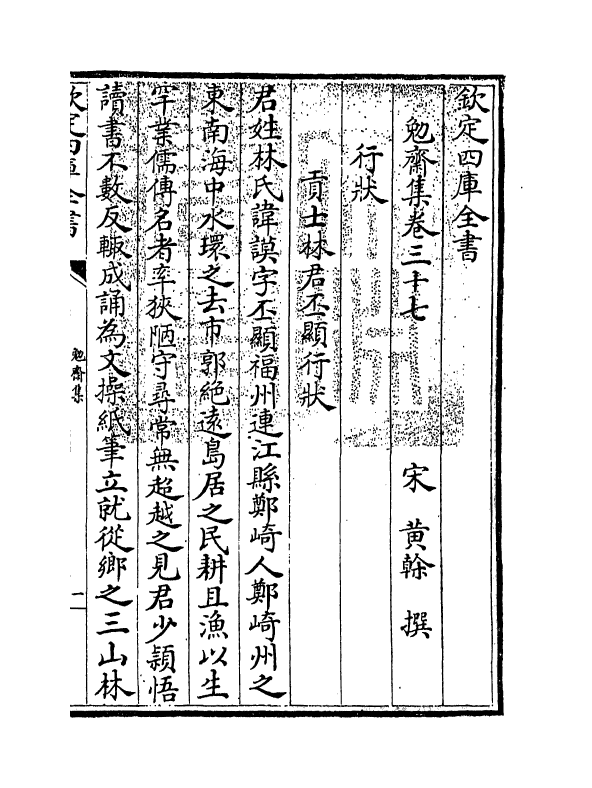 欽定四庫全書
勉齋集卷三十七
宋 黄榦 撰
行狀
貢士林君丕顯行狀
君姓林氏諱謨字丕顯福州連江縣鄭崎人鄭崎州之
東南海中水環之去市郭絶逺島居之民耕且漁以生
罕業儒傳名者率狹陋守尋常無超越之見君少穎悟
讀書不數反輙成誦為文操紙筆立就從鄉之三山林
欽定四庫全書
勉齋集
一